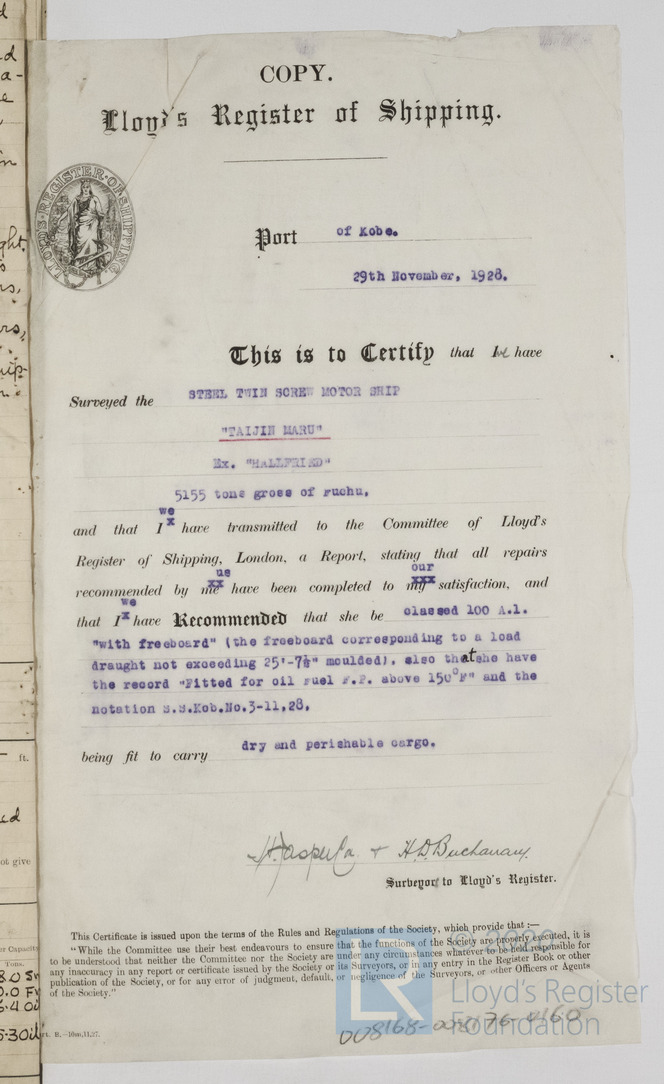 COPY.
Lloyd's Register of Shipping.
LLOYD'S REGISTER OF SHIPPING
Port of Kobe.
29th November, 1928.
This is to Certify that I we have
Surveyed the STEEL TWIN SCREW MOTOR SHIP
"TAIJIN MARU"
Ex. "HALLFRIED"
5155 tons gross of Fuchu,
we
and that I x have transmitted to the Committee of Lloyd's
Register of Shipping, London, a Report, stating that all repairs
us our
recommended by me xx have been completed to my xxx satisfaction, and
we
that I x have Recommended that she be classed 100 A.1.
"with freeboard" (the freeboard corresponding to a load
draught not exceeding 25'-7½" moulded), also that she have
the record "Fitted for oil fuel F.P. above 150°F" and the
notation S.S.Kob.No.3-11,28,
being fit to carry dry and perishable cargo.
& H.D. Buchanan.
Surveyor to Lloyd's Register.
This Certificate is issued upon the terms of the Rules and Regulations of the Society, which provide that:—
"While the Committee use their best endeavours to ensure that the functions of the Society are properly executed, it is
to be understood that neither the Committee nor the Society are under any circumstances whatever to be held responsible for
any inaccuracy in any report or certificate issued by the Society or its Surveyors, or in any entry in the Register Book or other
publication of the Society, or for any error of judgment, default, or negligence of the Surveyors, or other Officers or Agents
of the Society."
rt. B.—10m,11,27.
© 2020
LR
Lloyd's Register
Foundation
008168-008176-0160
ght.
ft.
ot give
er Capacity
Tons.